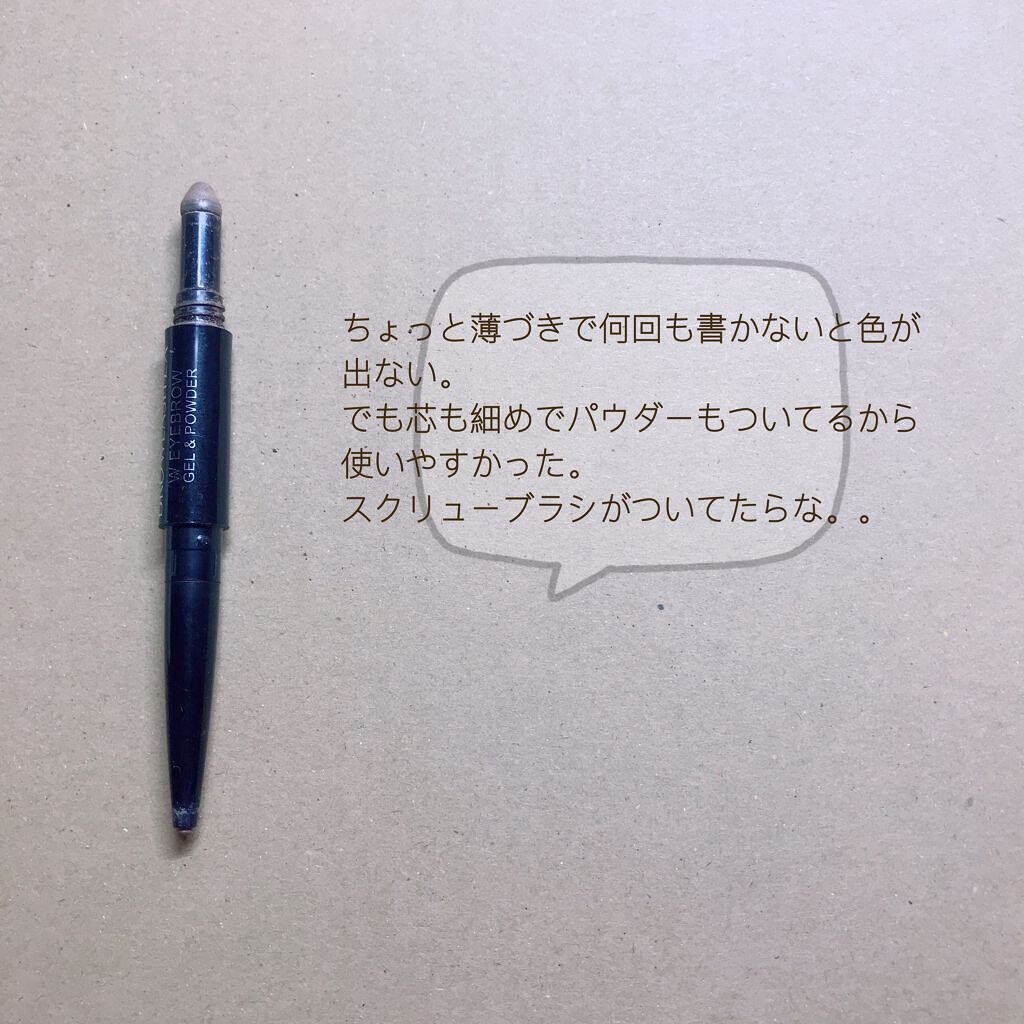 W EYEBROW
GEL & POWDER
ちょっと薄づきで何回も書かないと色が
出ない。
でも芯も細めでパウダーもついてるから
使いやすかった。
スクリューブラシがついてたらな。。